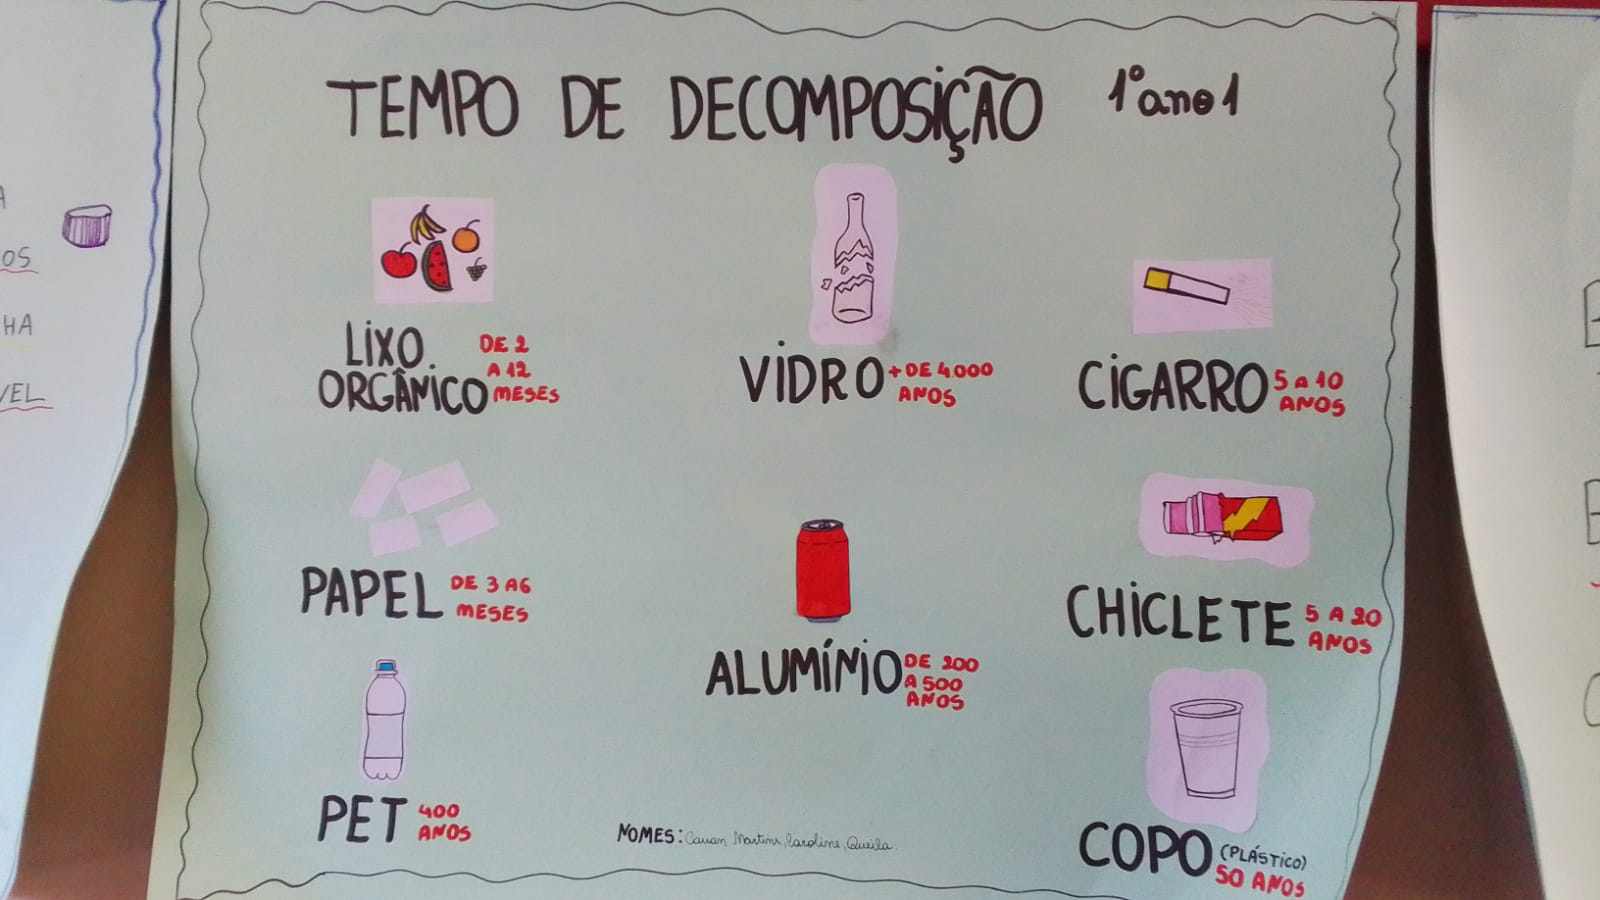 TEMPO DE DECOMPOSIÇÃO 1º ano 1
LIXO
ORGÂNICO
DE 2
A 12
MESES
VIDRO
+ DE 4.000
ANOS
CIGARRO
5 A 10
ANOS
PAPEL
DE 3 A 6
MESES
ALUMÍNIO
DE 200
A 500
ANOS
CHICLETE
5 A 20
ANOS
PET
400
ANOS
COPO
(PLÁSTICO)
50 ANOS
NOMES: Cauan Martins, Caroline, Queila.
A
OS
HA
VEL